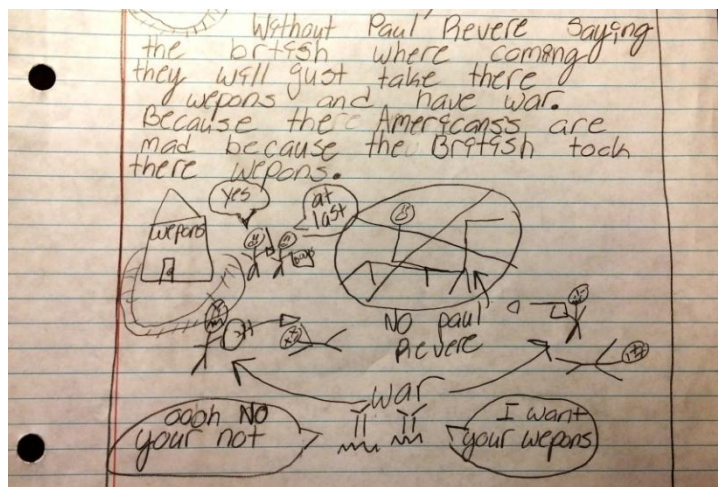 Without Paul Revere saying
the brtish where coming
they will just take there
wepons and have war.
Because the Americans's are
mad because the British took
there wepons.
yes
at
last
wepons
NO paul
Revere
war
oooh NO
your not
I want
your wepons